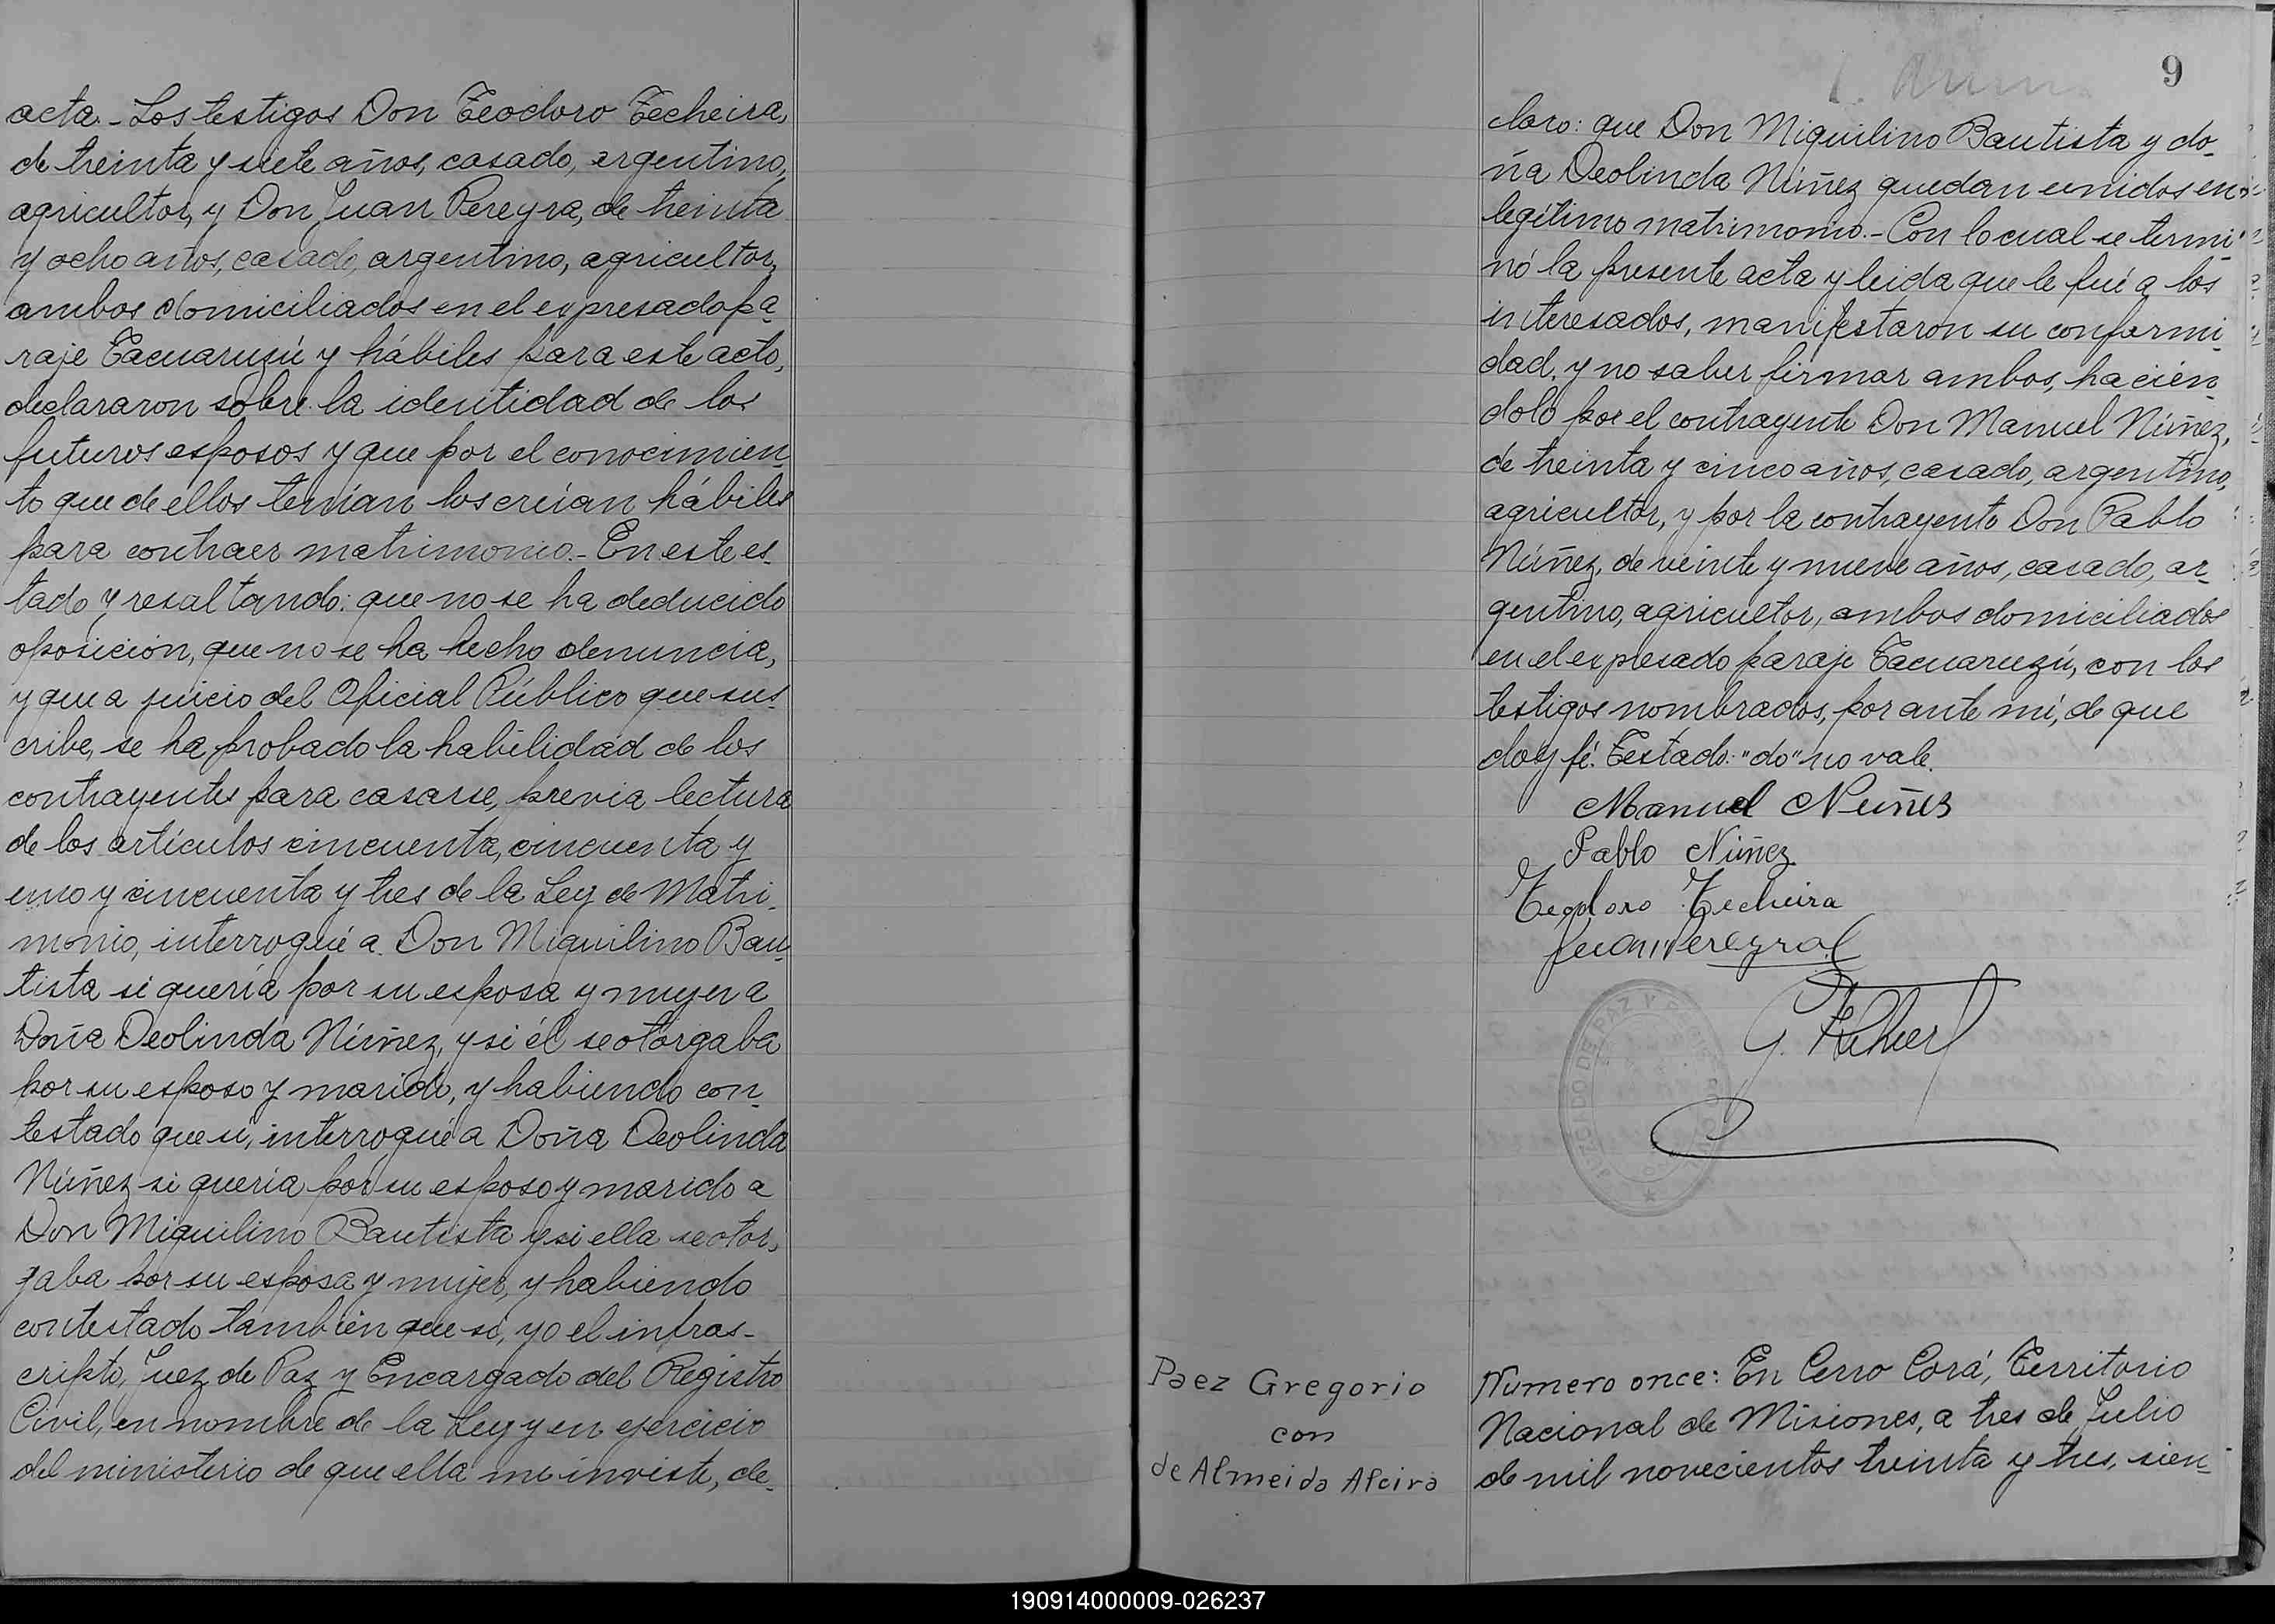 acta.- Los testigos Don Teodoro Techeira,
de treinta y siete años, casado, argentino,
agricultor, y Don Juan Pereyra, de treinta
y ocho años, casado, argentino, agricultor,
ambos domiciliados en el expresado pa-
raje Tacuaruzú y hábiles para este acto,
declararon sobre la identidad de los
futuros esposos y que por el conocimien-
to que de ellos tenían los creían hábiles
para contraer matrimonio.- En este es-
tado y resaltando: que no se ha deducido
oposición, que no se ha hecho denuncia,
y que a juicio del Oficial Público que sus-
cribe, se ha probado la habilidad de los
contrayentes para casarse, previa lectura
de los artículos cincuenta, cincuenta y
uno y cincuenta y tres de la Ley de Matri-
monio, interrogué a Don Miquilino Bau-
tista si quería por su esposa y mujer a
Doña Deolinda Núñez, y si él se otorgaba
por su esposo y marido, y habiendo con-
testado que sí, interrogué a Doña Deolinda
Núñez si quería por su esposo y marido a
Don Miquilino Bautista y si ella se otor-
gaba por su esposa y mujer, y habiendo
contestado también que sí, yo el infras-
cripto, Juez de Paz y Encargado del Registro
Civil, en nombre de la Ley y en ejercicio
del ministerio de que ella me inviste, de-
9
claro: que Don Miquilino Bautista y do-
ña Deolinda Núñez quedan unidos en
legítimo matrimonio.- Con lo cual se termi-
nó la presente acta y leida que le fué a los
interesados, manifestaron su conformi-
dad, y no saber firmar ambos, hacien-
dolo por el contrayente Don Manuel Núñez,
de treinta y cinco años, casado, argentino,
agricultor, y por la contrayente Don Pablo
Núñez, de veinte y nueve años, casado, ar-
gentino, agricultor, ambos domiciliados
en el expresado paraje Tacuaruzú, con los
testigos nombrados, por ante mí, de que
doy fé. Testado: "do" no vale.
Manuel Nuñes
Pablo Núñez
Teodoro Techeira
Juan Pereyra
JUZGADO DE PAZ Y
Paez Gregorio
con
de Almeida Alcira
Numero once: En Cerro Corá, Territorio
Nacional de Misiones, a tres de Julio
de mil novecientos treinta y tres, sien-
190914000009-026237